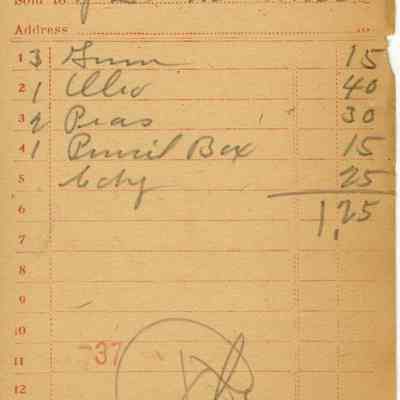 Sold to
Address
1 3 Gum 15
2 1 Oleo 40
3 2 Peas 30
4 1 Pencil Box 15
5 25
6 1,25
7
8
9
10
11 37
12